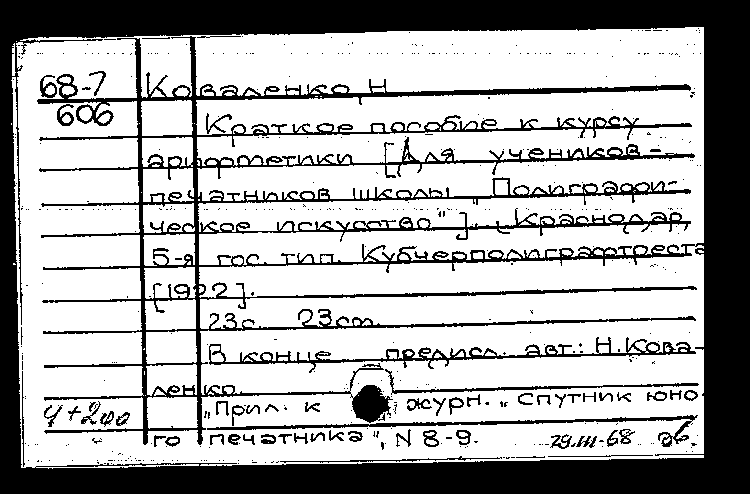 68-7 Коваленко, Н
606 Краткое пособие к курсу
арифметики [Для учеников-
печатников школы „Полиграфи-
ческое искусство"]. Краснодар,
5-я гос. тип. Кубчерполиграфтреста
[1922].
23с. 23см.
В конце предисл. авт.: Н.Кова-
ленко.
„Прил. к журн. „Спутник юно-
го печатника", N 8-9.
29.III-68